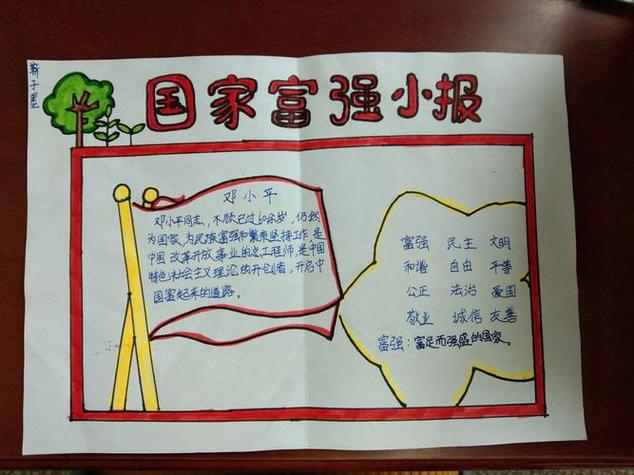 国家富强小报
邓小平
邓小平同志，不顾已过60余岁，仍然
为国家，为民族富强和繁荣坚持工作，是
中国改革开放事业的总工程师，是中国
特色社会主义理论的开创者，开启中
国富起来的道路。
富强 民主 文明
和谐 自由 平等
公正 法治 爱国
敬业 诚信 友善
富强：富足而强盛的国家。